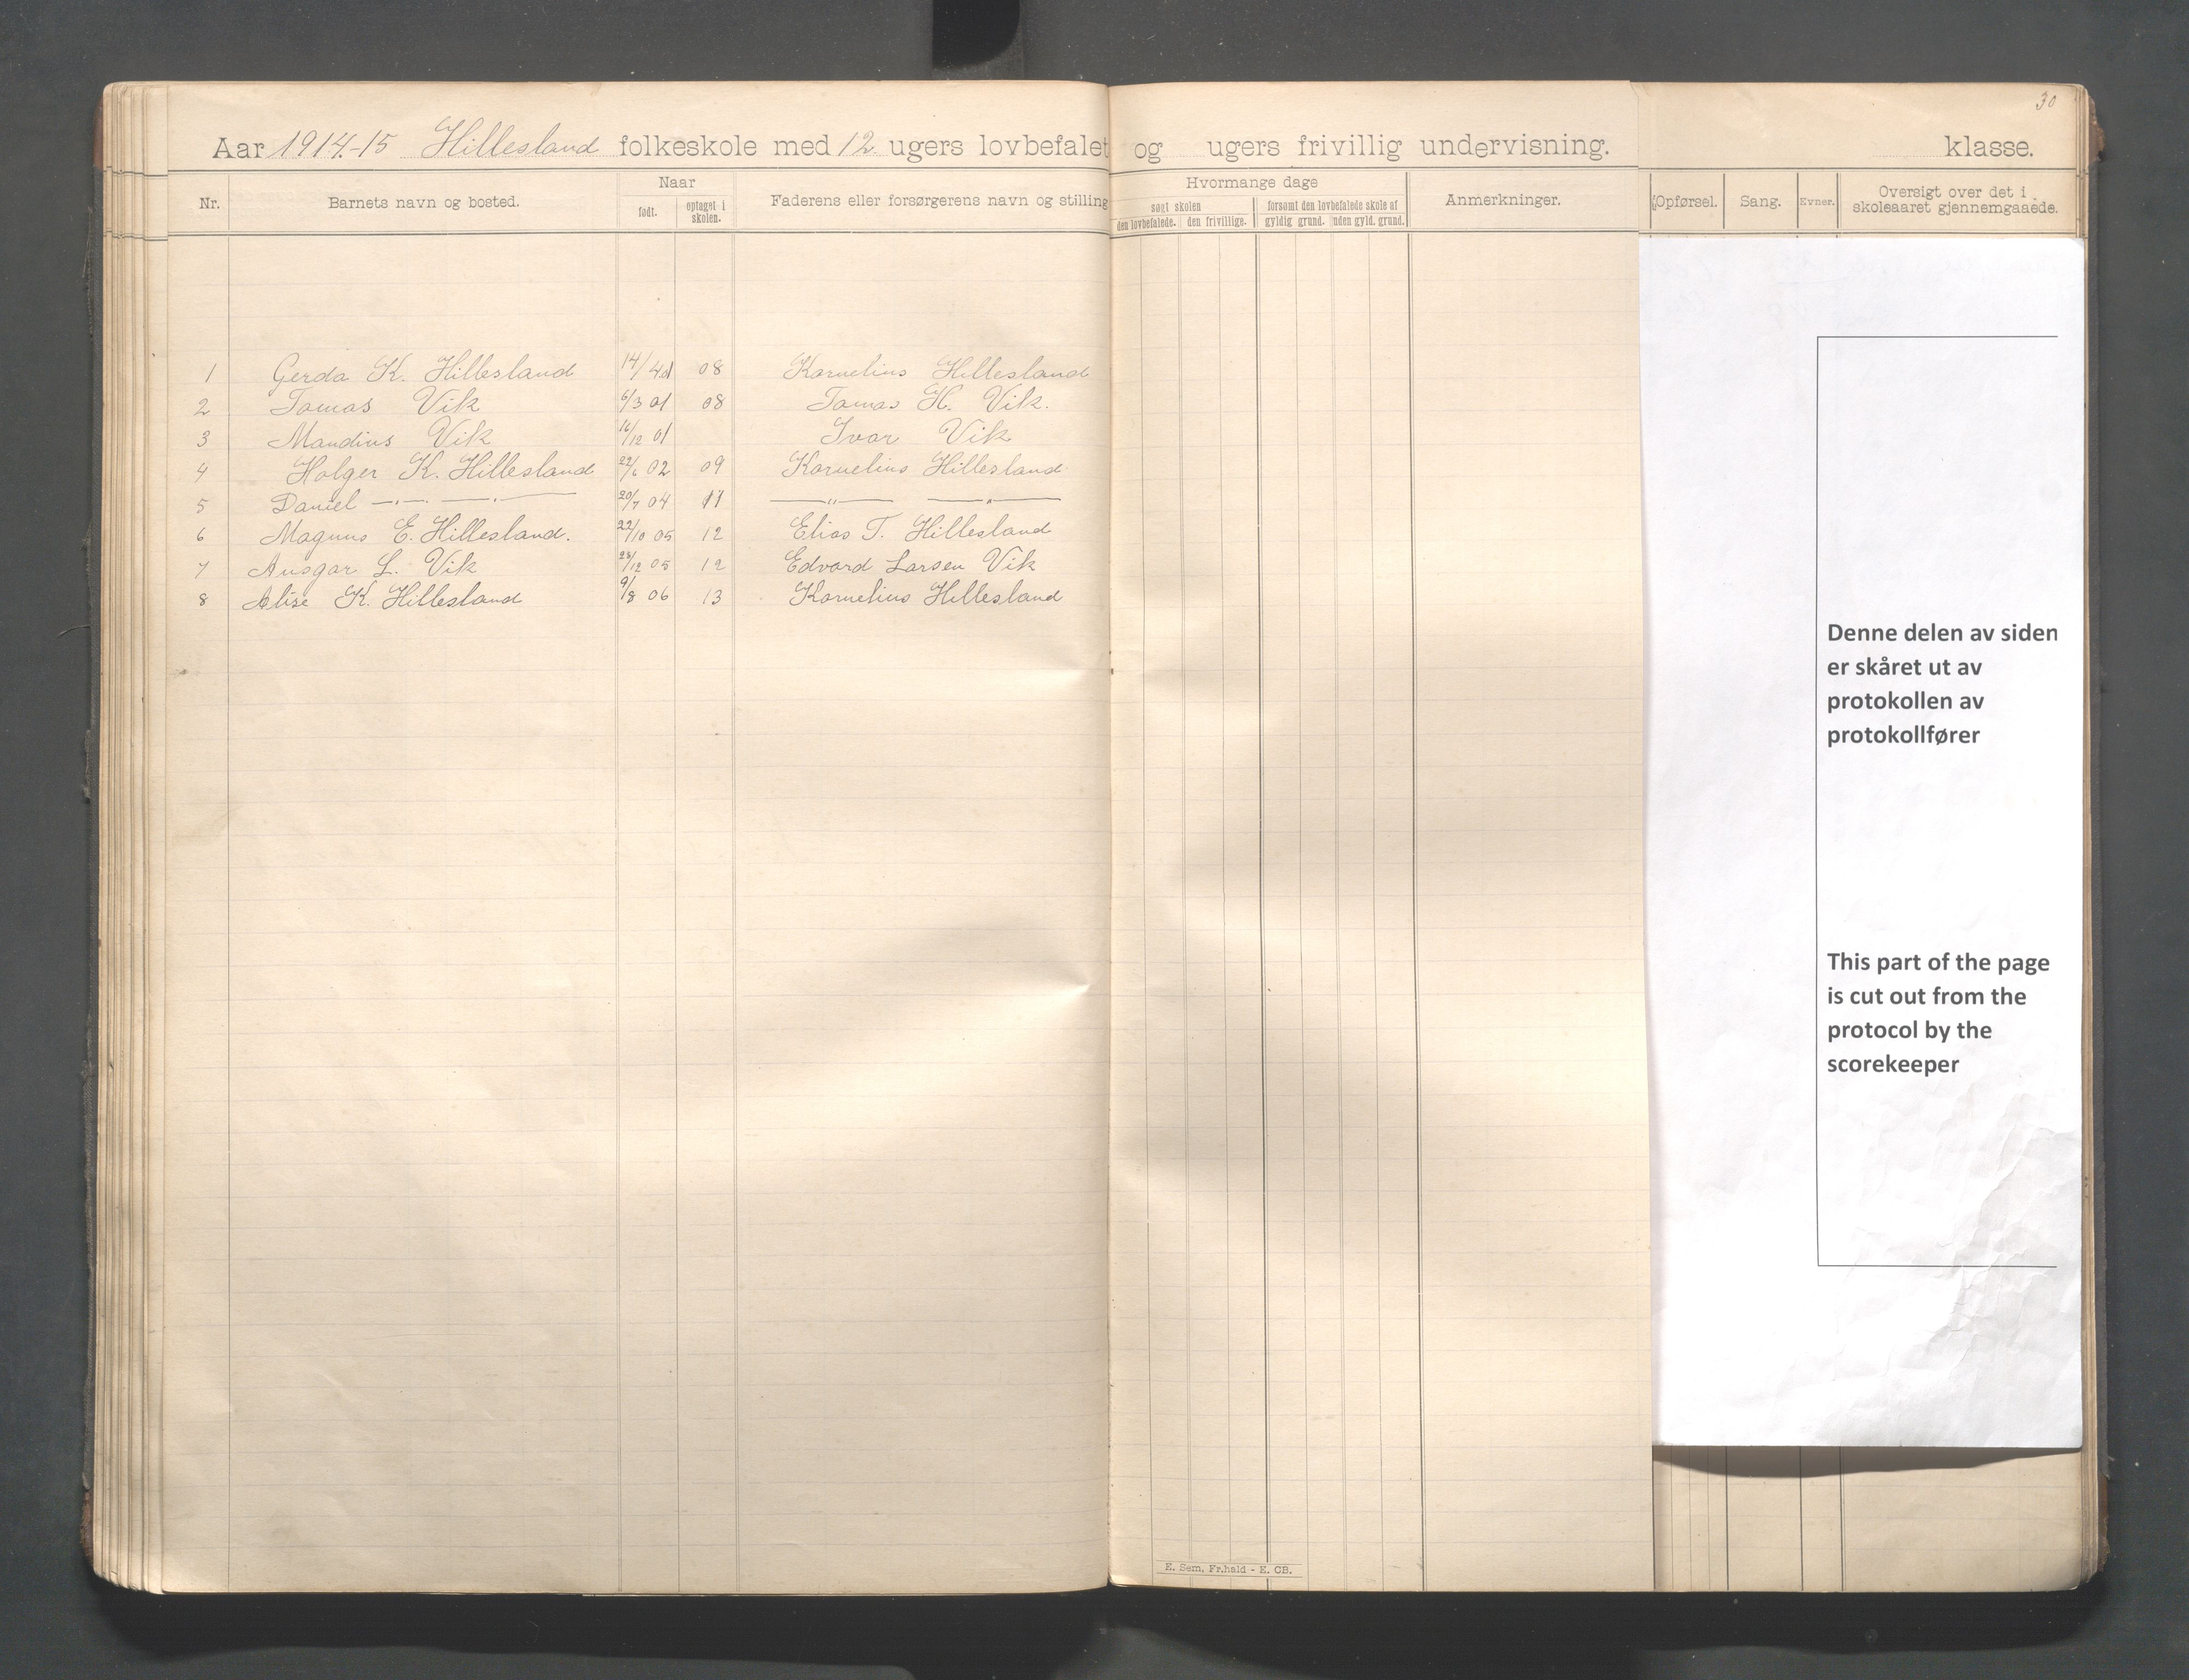 30
Aar 1914.-15 Hillesland folkeskole med 12 ugers lovbefalet og ugers frivillig undervisning. klasse.
Nr. Barnets navn og bosted. Naar født. optaget i skolen. Faderens eller forsørgerens navn og stilling
Hvormange dage Anmerkninger. Opførsel. Sang. Evner. Oversigt over det i skoleaaret gjennemgaaede.
søgt skolen forsømt den lovbefalede skole af
den lovbefalede. den frivillige. gyldig grund. uden gyld. grund.
1 Gerda K. Hillesland 14/4 01 08 Kornelius Hillesland
2 Tomas Vik 6/3 01 08 Tomas H. Vik.
3 Mandius Vik 16/12 01 Ivar Vik
4 Holger K. Hillesland 22/6 02 09 Kornelius Hillesland
5 Daniel —"— —"— 20/7 04 11 —"— —"—
6 Magnus E. Hillesland. 22/10 05 12 Elias T. Hillesland
7 Ansgar L. Vik 28/12 05 12 Edvard Larsen Vik
8 Alise K. Hillesland 9/8 06 13 Kornelius Hillesland
Denne delen av siden
er skåret ut av
protokollen av
protokollfører
This part of the page
is cut out from the
protocol by the
scorekeeper
E. Sem, Fr.hald - E. CB.